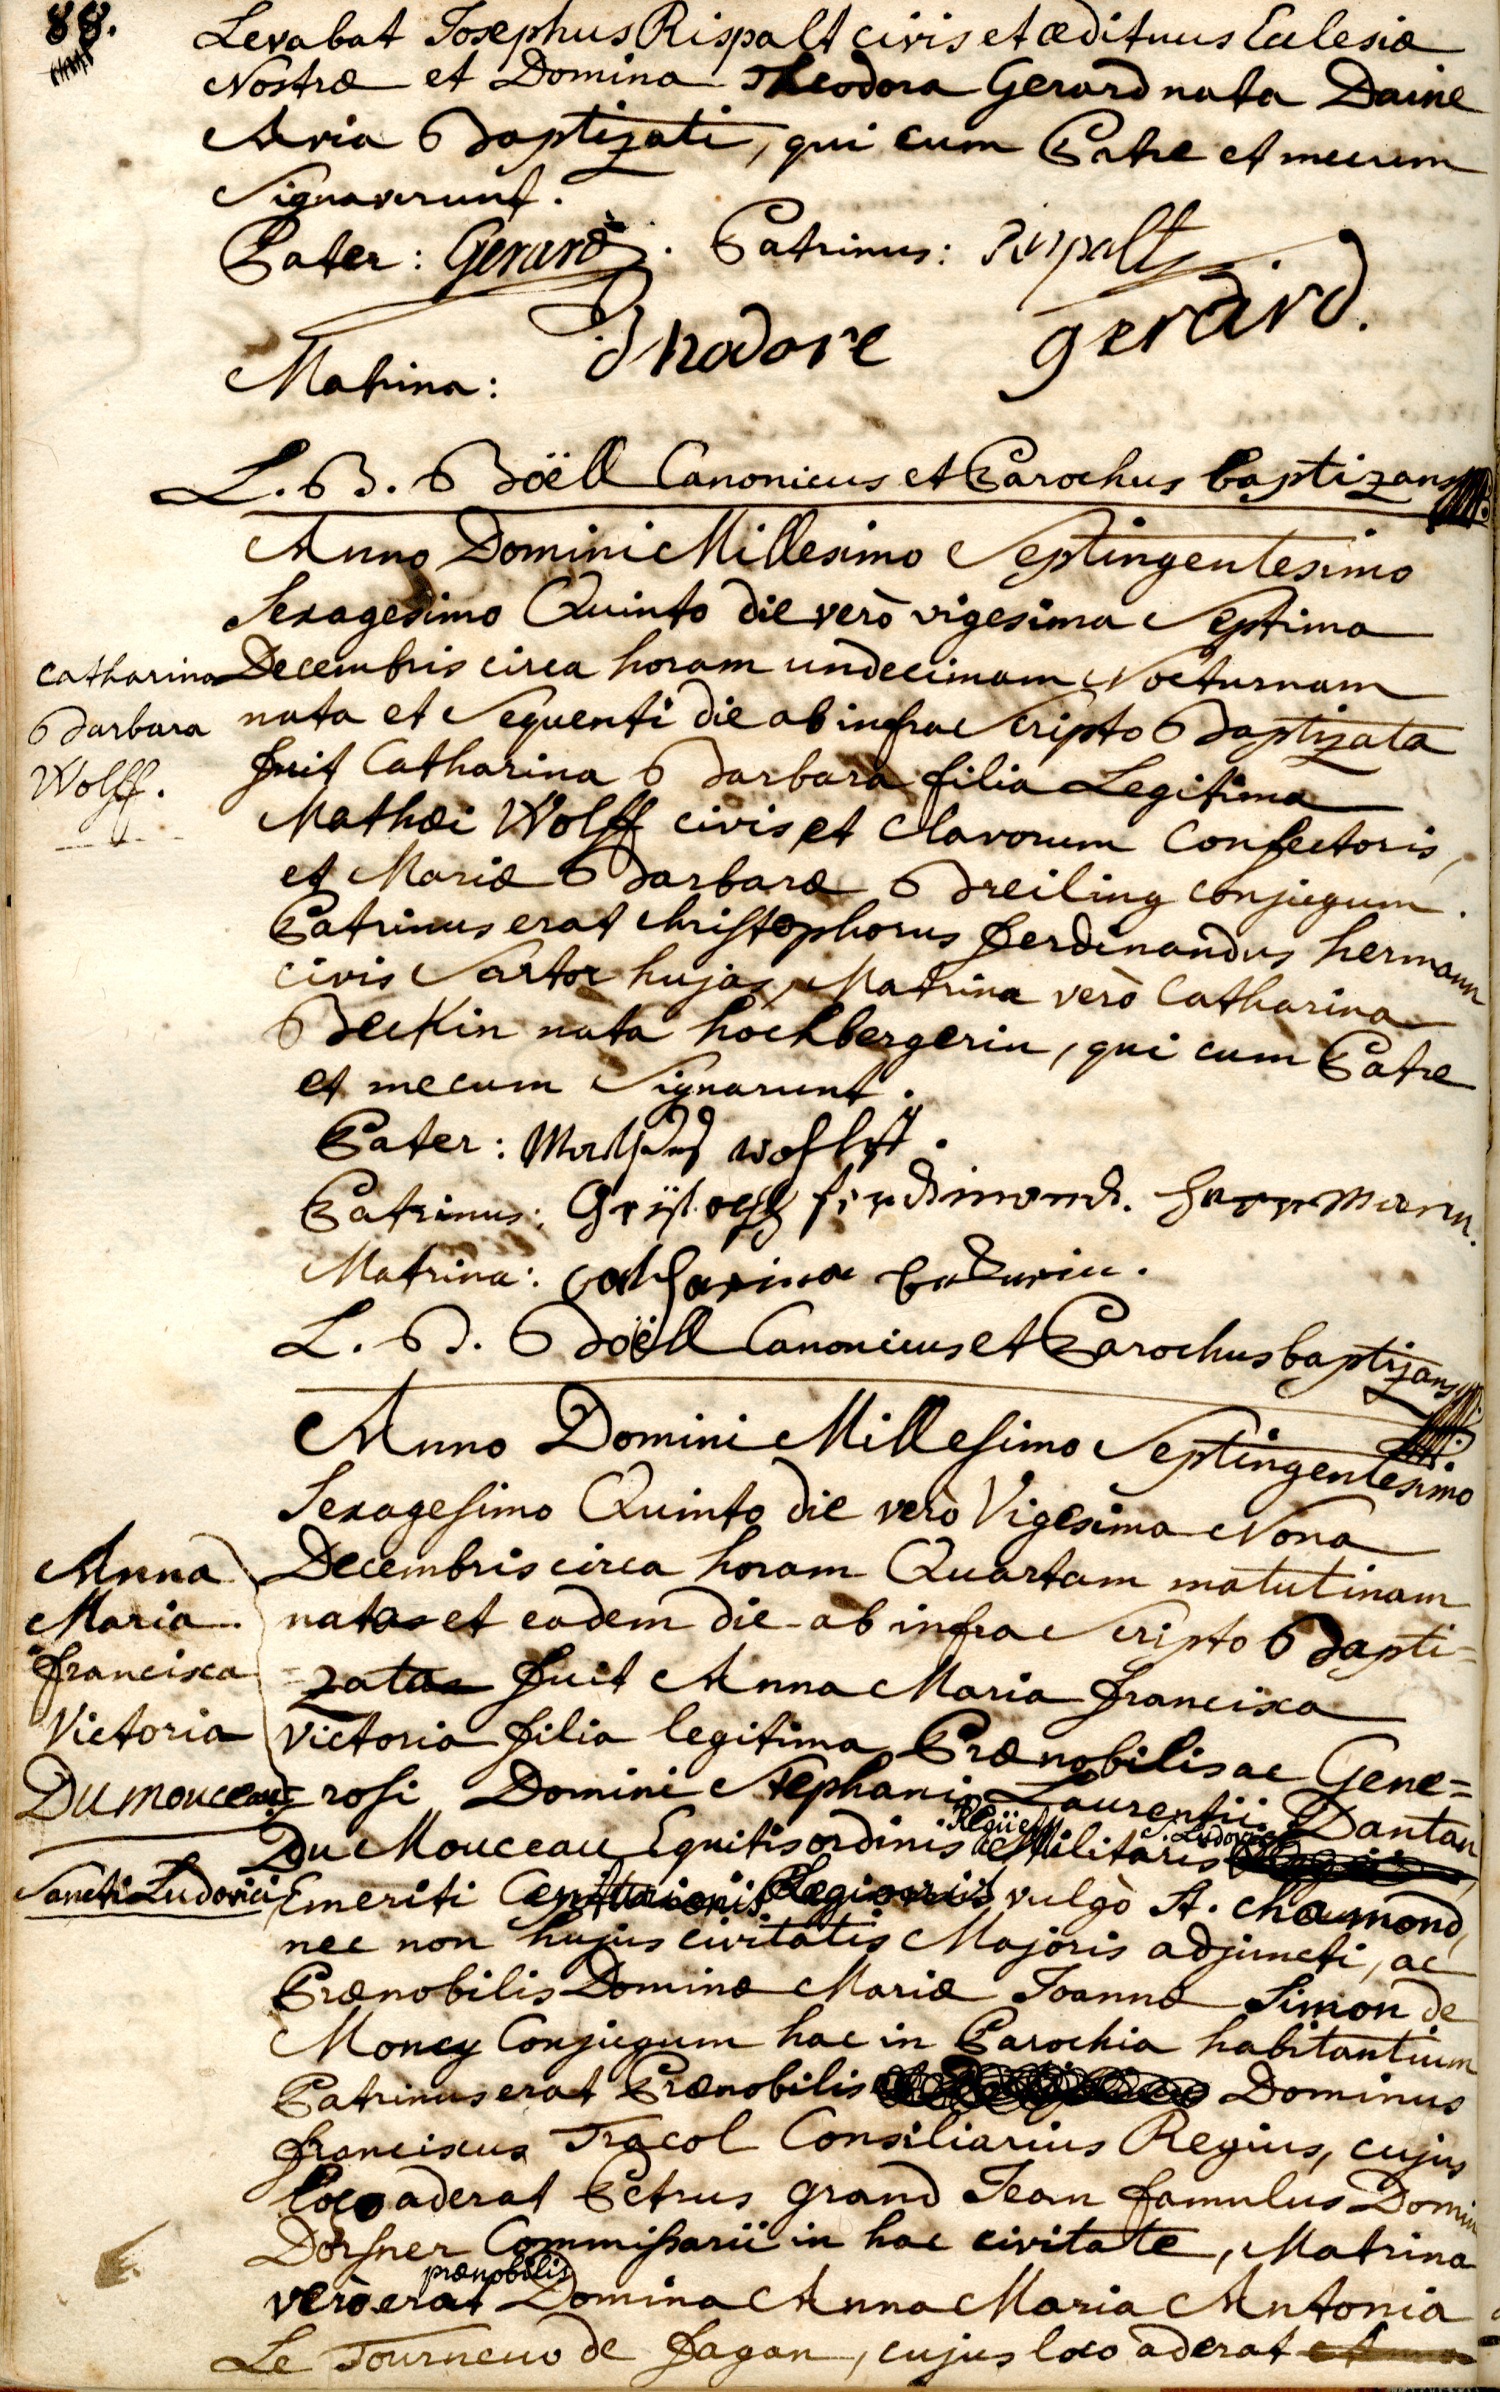 88.
Levabat Josephus Rispalt civis et ædituus Ecclesiæ
Nostræ et Domina Theodora Gerard nata Daine
Avia Baptizati, qui cum Patre et mecum
Signaverunt.
Pater: Gerard. Patrinus: Rispalt
Matrina: Thadore gerard.
L. B. Böell Canonicus et Parochus baptizans
Anno Domini Millesimo Septingentesimo
Sexagesimo Quinto die verò vigesima Septima
Decembris circa horam undecimam Nocturnam
nata et Sequenti die ab infra Scripto Baptizata
fuit Catharina Barbara filia Legitima
Mathæi Wolff civis et Clavorum Confectoris,
et Mariæ Barbaræ Breiling conjugum.
Patrinus erat Christophorus Ferdinandus hermann
civis Sartor hujas, Matrina verò Catharina
Beckin nata hochbergerin, qui cum Patre
et mecum Signarunt.
Catharina
Barbara
Wolff.
Pater: Mathæus wolff.
Patrinus: Christoph ferdinand. Herrmann.
Matrina: Catharina
L. B. Böell Canonicus et Parochus baptizans
Anno Domini Millesimo Septingentesimo
Sexagesimo Quinto die verò Vigesima Nona
Decembris circa horam Quartam matutinam
nata et eadem die ab infra Scripto Bapti=
zata fuit Anna Maria Francisca
Victoria filia legitima Prænobilis ac Gene=
rosi Domini Stephani Laurentii Dantan
Du Mouceau Equitis ordinis Militaris S. Ludovici
Emeriti vulgò St. Chaumond,
nec non hujus civitatis Majoris adjuncti, ac
Prænobilis Dominæ Mariæ Joannæ Simon de
Moncy Conjugum hac in Parochia habitantium
Patrinus erat Prænobilis Dominus
Franciscus Tracol Consiliarius Regius, cujus
loco aderat Petrus grand Jean famulus Domini
Dorsner Commissarii in hac civitate, Matrina
verò erat prænobilis Domina Anna Maria Antonia
Le Tourneuo de Fagan, cujus loco aderat
Anna
Maria
Francisca
Victoria
Du mouceau
Sancti Ludovici